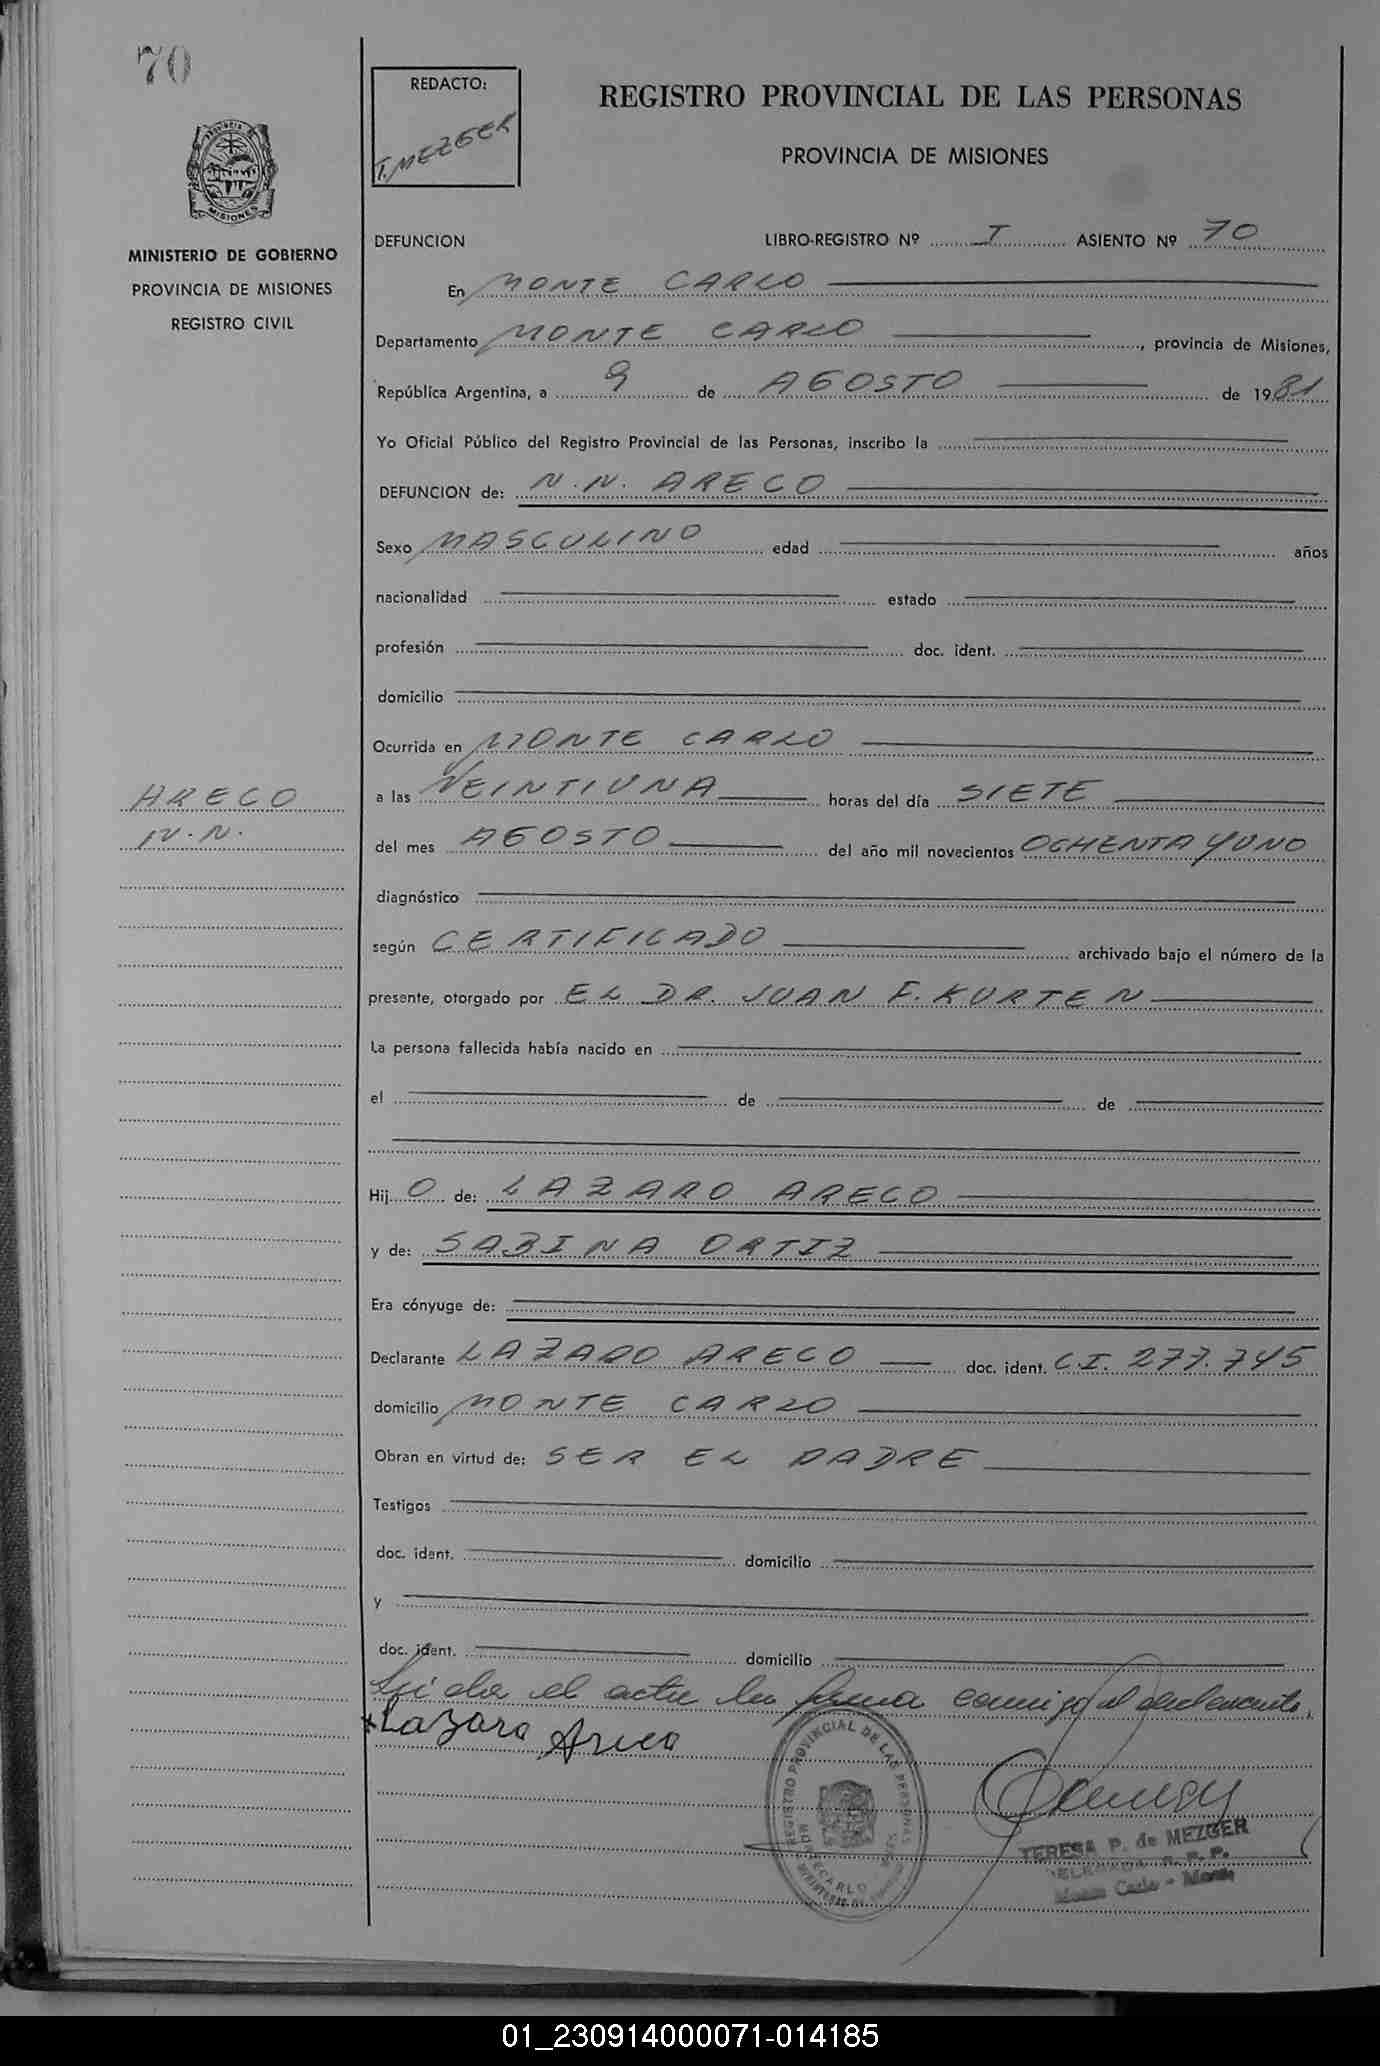 70
REDACTO:
T. MEZGER
REGISTRO PROVINCIAL DE LAS PERSONAS
PROVINCIA DE MISIONES
PROVINCIA DE
MISIONES
MINISTERIO DE GOBIERNO
PROVINCIA DE MISIONES
REGISTRO CIVIL
DEFUNCION LIBRO-REGISTRO Nº I ASIENTO Nº 70
En MONTE CARLO
Departamento MONTE CARLO, provincia de Misiones,
República Argentina, a 9 de AGOSTO de 1981
Yo Oficial Público del Registro Provincial de las Personas, inscribo la
DEFUNCION de: N.N. ARECO
Sexo MASCULINO edad años
nacionalidad estado
profesión doc. ident.
domicilio
Ocurrida en MONTE CARLO
ARECO
N.N.
a las VEINTIUNA horas del día SIETE
del mes AGOSTO del año mil novecientos OCHENTA Y UNO
diagnóstico
según CERTIFICADO archivado bajo el número de la
presente, otorgado por EL DR. JUAN F. KURTEN
La persona fallecida había nacido en
el de de
Hij O de: LAZARO ARECO
y de: SABINA ORTIZ
Era cónyuge de:
Declarante LAZARO ARECO doc. ident. C.I. 277.745
domicilio MONTE CARLO
Obran en virtud de: SER EL PADRE
Testigos
doc. ident. domicilio
y
doc. ident. domicilio
el acta la firma conmigo el declarante.
Lazaro Areco
REGISTRO PROVINCIAL DE LAS PERSONAS
MONTECARLO
TERESA P. de MEZGER
DELEGADA R. P. P.
Monte Carlo - Mnes
01_230914000071-014185